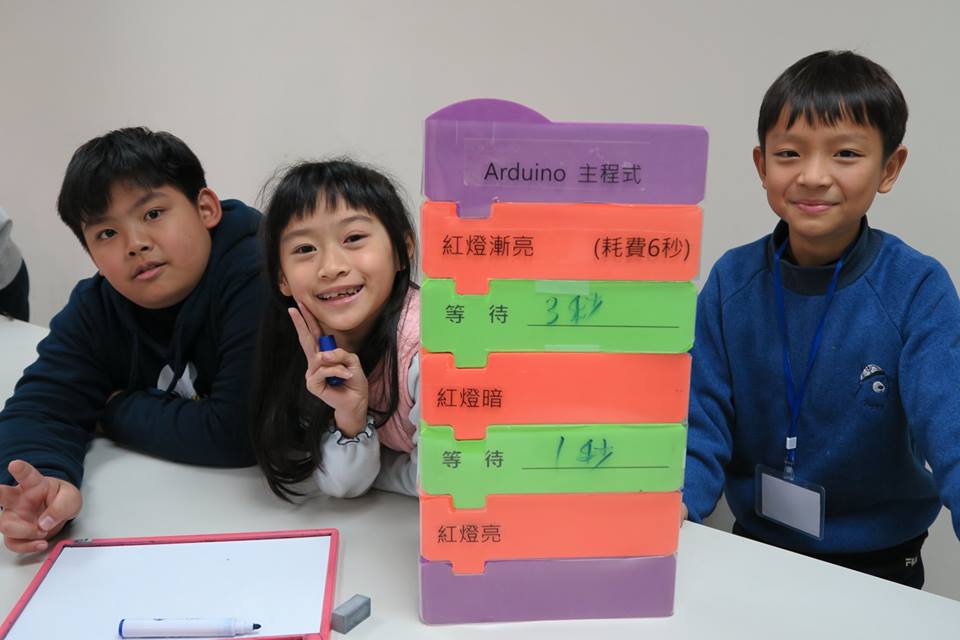 Arduino 主程式
紅燈漸亮 (耗費6秒)
等 待 3秒
紅燈暗
等 待 1秒
紅燈亮